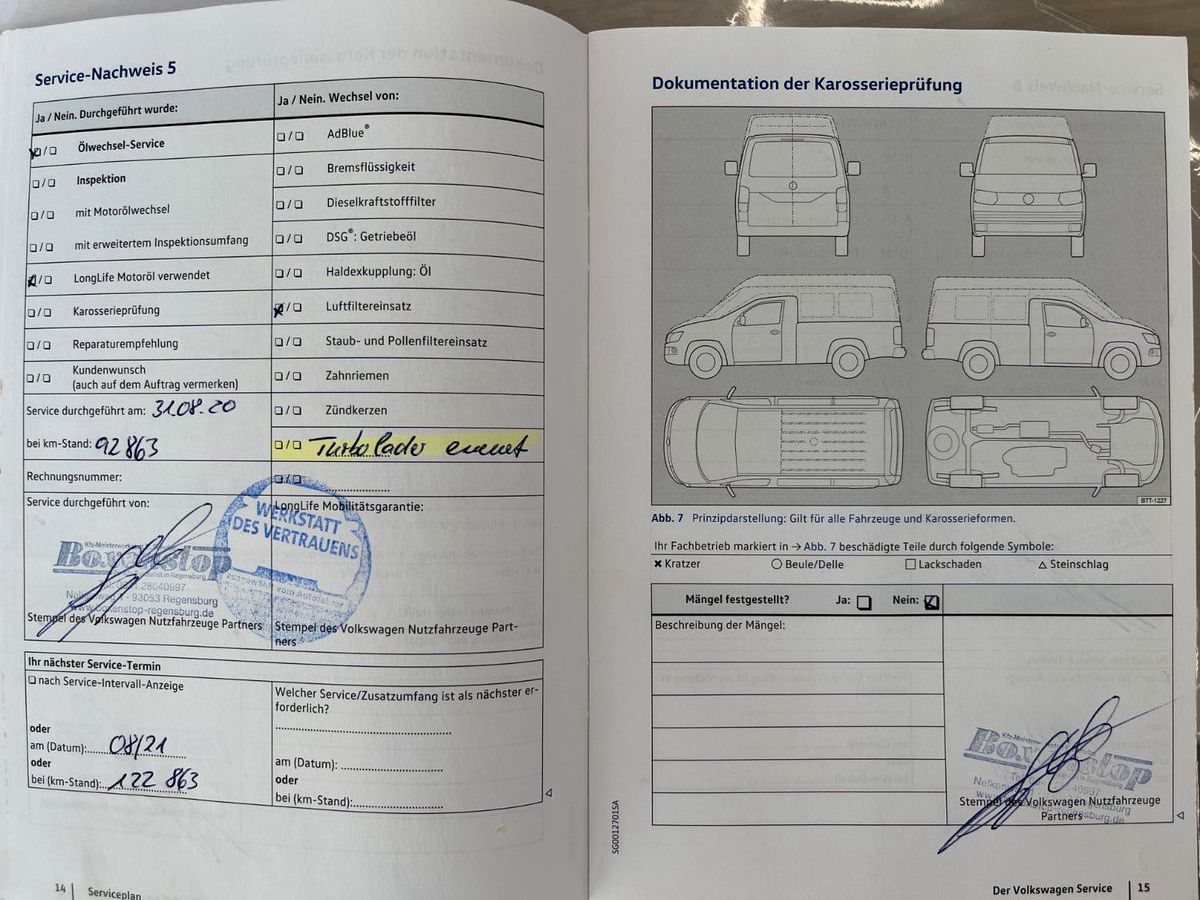 Service-Nachweis 5
Ja / Nein. Durchgeführt wurde:
Ölwechsel-Service
Inspektion
mit Motorölwechsel
mit erweitertem Inspektionsumfang
LongLife Motoröl verwendet
Karosserieprüfung
Reparaturempfehlung
Kundenwunsch
(auch auf dem Auftrag vermerken)
Service durchgeführt am: 31.08.20
bei km-Stand: 92 863
Rechnungsnummer:
Service durchgeführt von:
Kfz-Meisterwerkstatt
Boxenstop
in Regensburg
28640997
93053 Regensburg
www.boxenstop-regensburg.de
Stempel des Volkswagen Nutzfahrzeuge Partners
Ja / Nein. Wechsel von:
AdBlue®
Bremsflüssigkeit
Dieselkraftstofffilter
DSG®: Getriebeöl
Haldexkupplung: Öl
Luftfiltereinsatz
Staub- und Pollenfiltereinsatz
Zahnriemen
Zündkerzen
Turbolader erneuert
LongLife Mobilitätsgarantie:
WERKSTATT
DES VERTRAUENS
Stempel des Volkswagen Nutzfahrzeuge Part-
ners
Ihr nächster Service-Termin
nach Service-Intervall-Anzeige
oder
am (Datum): 08/21
oder
bei (km-Stand): 122 863
Welcher Service/Zusatzumfang ist als nächster er-
forderlich?
am (Datum):
oder
bei (km-Stand):
14 Serviceplan
Dokumentation der Karosserieprüfung
BTT-1227
Abb. 7 Prinzipdarstellung: Gilt für alle Fahrzeuge und Karosserieformen.
Ihr Fachbetrieb markiert in → Abb. 7 beschädigte Teile durch folgende Symbole:
✖ Kratzer ○ Beule/Delle □ Lackschaden △ Steinschlag
Mängel festgestellt? Ja: Nein:
Beschreibung der Mängel:
Boxenstop
Stempel des Volkswagen Nutzfahrzeuge
Partners
SG0012701SA
Der Volkswagen Service 15